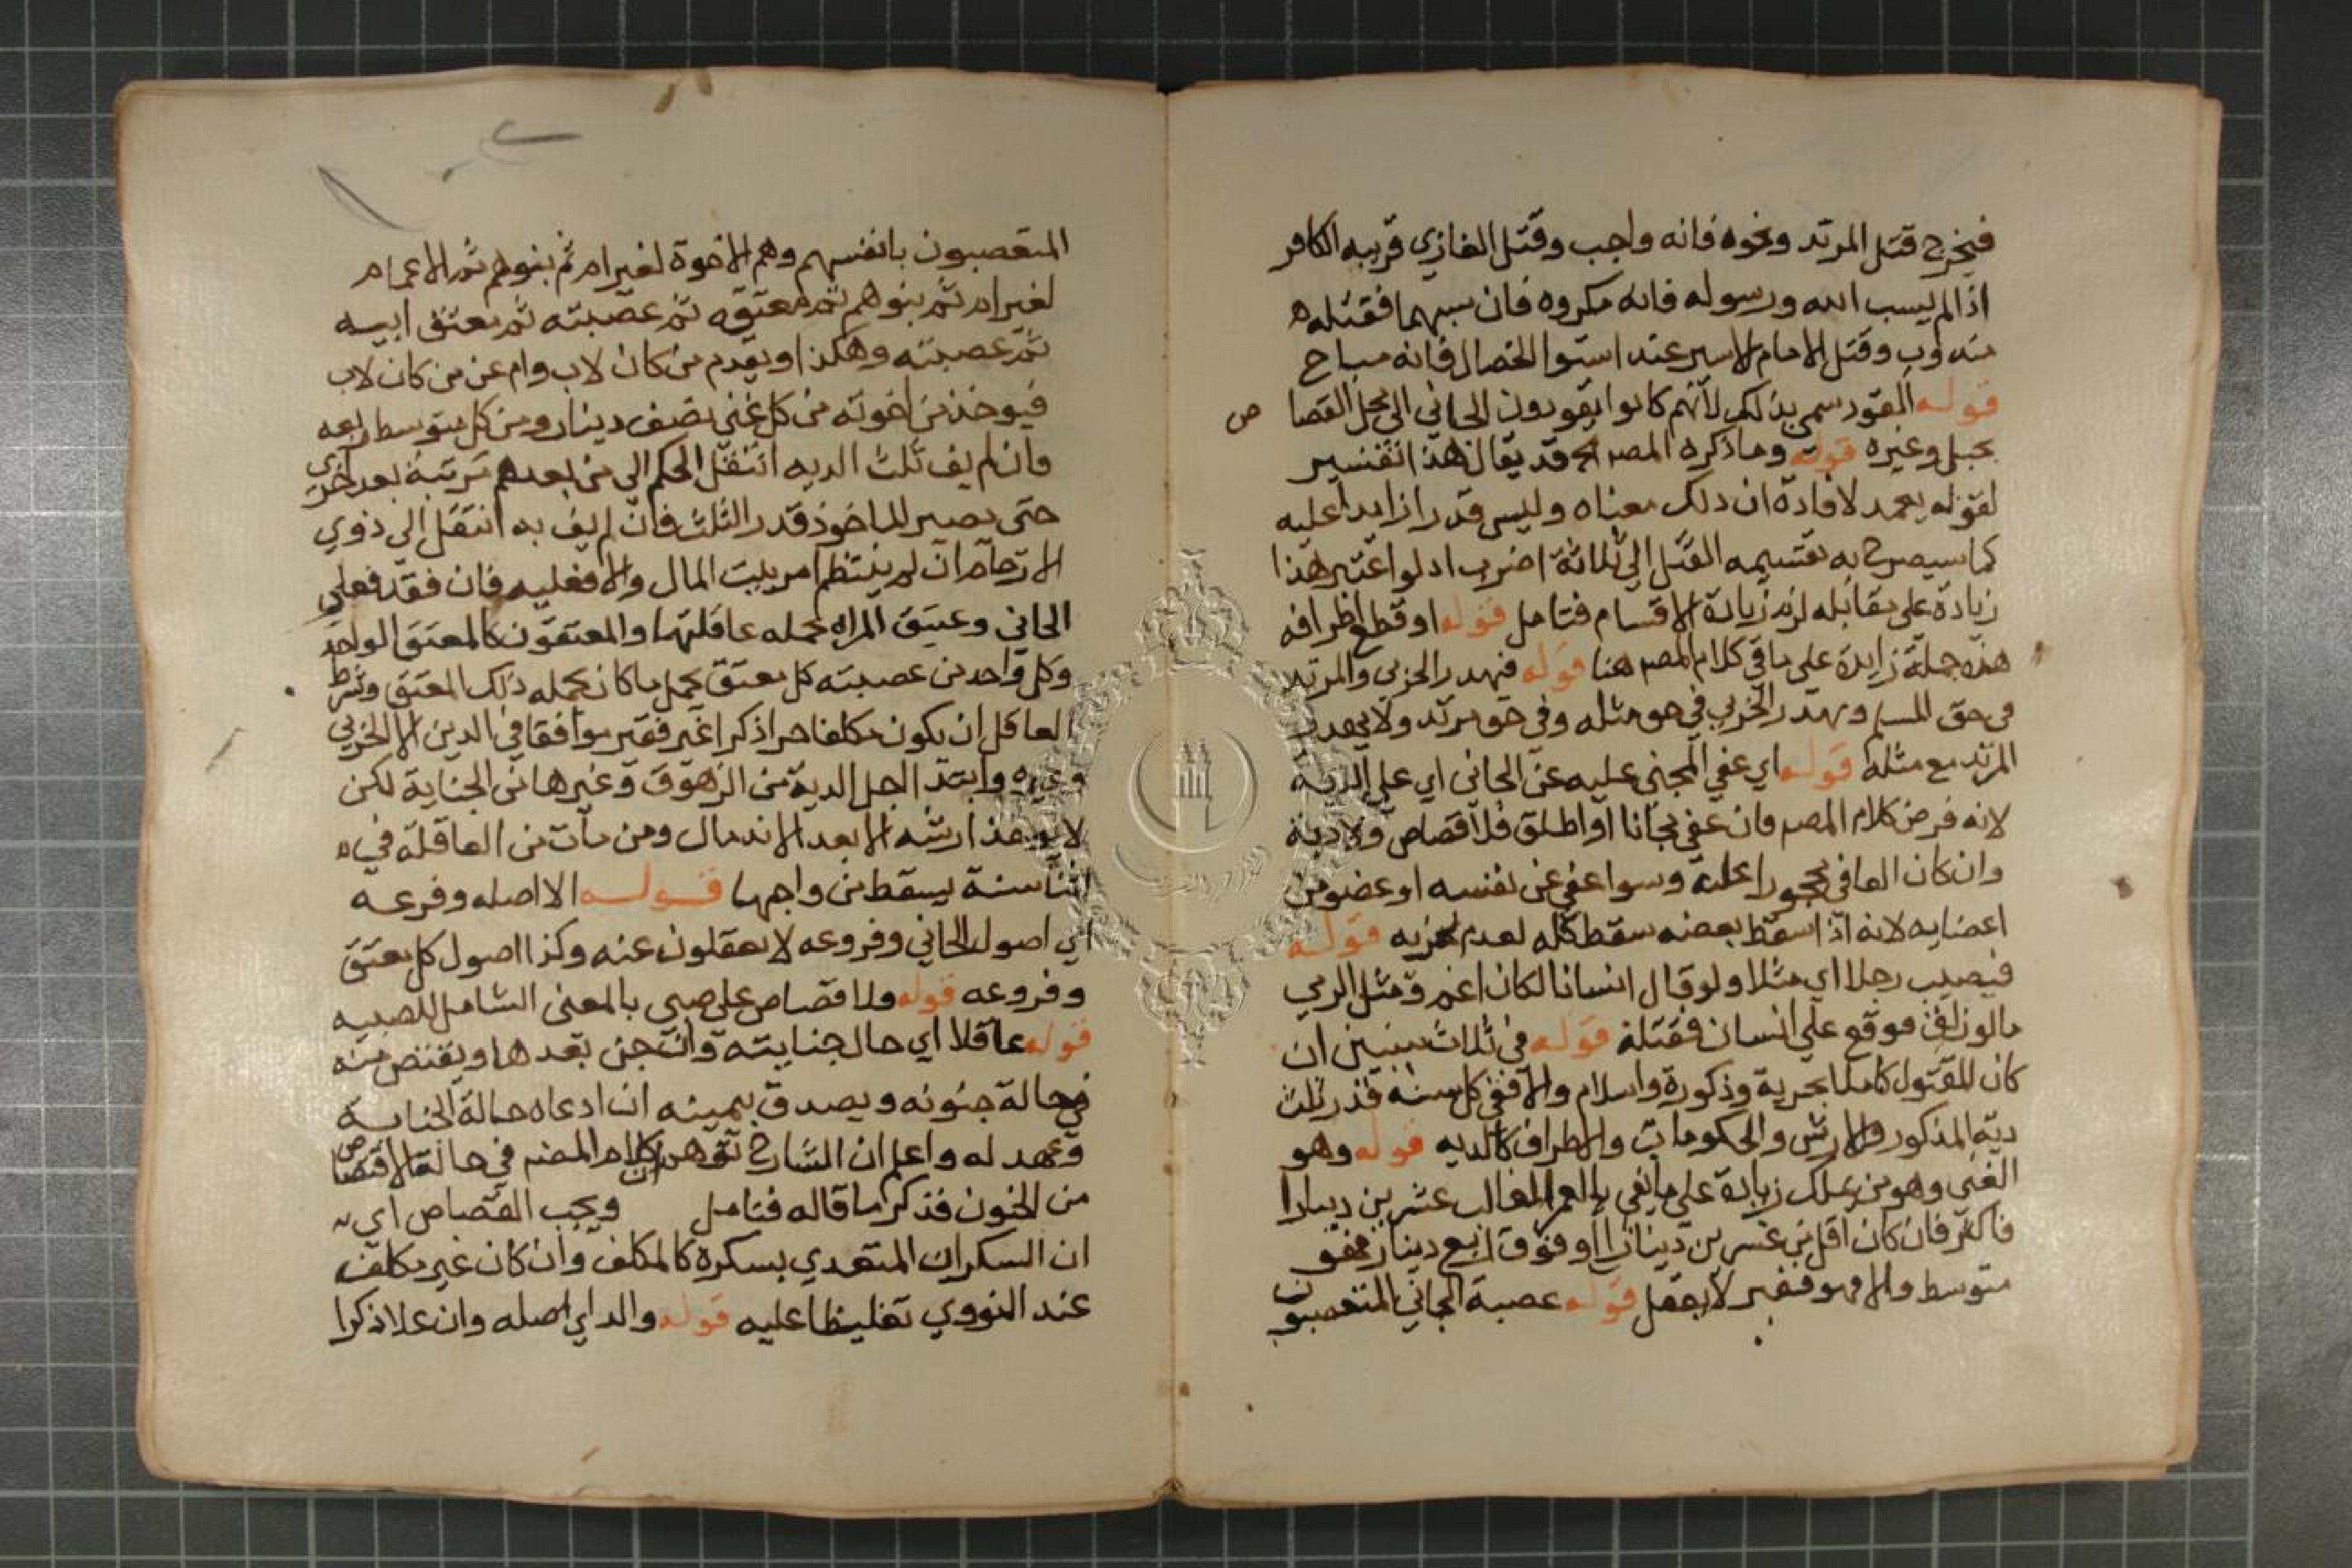 فيخرج قتل المرتد ونحوه فانه واجب وقتل الغازي قريبه الكافر
اذا لم يسب الله ورسوله فانه مكروه فان سبهما فقتله
مندوب وقتل الامام الاسير عند استوا الخصال فانه مباح
قوله القود سمي بذلك لانهم كانوا يقودون الجاني الى محل القصاص
بحبل وغيره قوله وما ذكره المصـ قد يقال هذا تفسير
لقوله بعمد لافادة ان ذلك معناه وليس قدرا زايدا عليه
كما سيصرح به تقسيمه القتل الى ثلاثة اضرب اد لو اعتبر هذا
زيادة على مقابله لزم زيادة الاقسام فتامل قوله او قطع اطرافه
هذه جملة زايدة على باقي كلام المصـ هنا قوله فيهدر الحربي والمرتد
في حق المسلم ويهدر الحربي في حق مثله وفي حق مرتد ولا يهدر
المرتد مع مثله قوله اي عفي المجني عليه عن الجاني اي على الدية
لانه فرض كلام المصـ فان عفي مجانا او اطلق فلا قصاص ولا دية
وان كان العافي محجورا عليه وسوا عفي عن نفسه او عضو من
اعضايه لانه اذا اسقط بعضه سقط كله لعدم تجزيه قوله
فيصيب رجلا اي مثلا ولو قال انسانا لكان اعم ومثل الرمي
ما لو زلق فوقع على انسان فقتله قوله في ثلاث سنين ان
كان المقتول كاملا بحرية وذكورة واسلام والا ففي كل سنة قدر ثلث
دية المذكور والارش والحكومات والاطراف كالديه قوله وهو
الغني وهو من يملك زيادة على ما يفي بالعمر الغالب عشرين دينارا
فاكثر فان كان اقل من عشرين دينارا او فوق ربع دينار فهو
متوسط والا فهو فقير لا يعقل قوله عصبة الجاني المتعصبون
المتعصبون بانفسهم وهم الاخوة لغير ام ثم بنوهم ثم الاعمام
لغير ام ثم بنوهم ثم معتقه ثم عصبته ثم معتق ابيه
ثم عصبته وهكذا ويقدم من كان لاب وام عن من كان لاب
فيوخذ من اخوته من كل غني نصف دينار ومن كل متوسط ربعه
فان لم يف ثلث الديه انتقل الحكم الى من بعدهم مرتبة بعد اخرى
حتى يصير الماخوذ قدر الثلث فان لم يف به انتقل الى ذوي
الارحام ان لم ينتظم امر بيت المال والا فعليه فان فقد فعلى
الجاني وعتيق المراه تحمله عاقلتها والمعتقون كالمعتق الواحد
وكل واحد من عصبته كل معتق يحمل ما كان يحمله ذلك المعتق وشرط
العاقل ان يكون مكلفا حرا ذكرا غير فقير موافقا في الدين الا الحربي
وغيره وابتدا اجل الدية من الزهوق وغيرها من الجناية لكن
لا يوخذ ارشه الا بعد الاندمال ومن مات من العاقلة في
اثنا سنة يسقط من واجبها قوله الا اصله وفرعه
اي اصول الجاني وفروعه لا يعقلون عنه وكذا اصول كل معتق
وفروعه قوله ولا قصاص على صبي بالمعنى الشامل للصبيه
قوله عاقلا اي حال جنايته وان جن بعدها ويقتص منه
في حالة جنونه ويصدق بيمينه ان ادعاه حالة الجناية
وعهد له واعلم ان الشارح توهم ان كلام المصنف في حالة الاقتصاص
من المجنون فذكر ما قاله فتامل ويجب القصاص اي
ان السكران المتعدي بسكره كالمكلف وان كان غير مكلف
عند النووي تغليظا عليه قوله والد اي اصله وان علا ذكرا